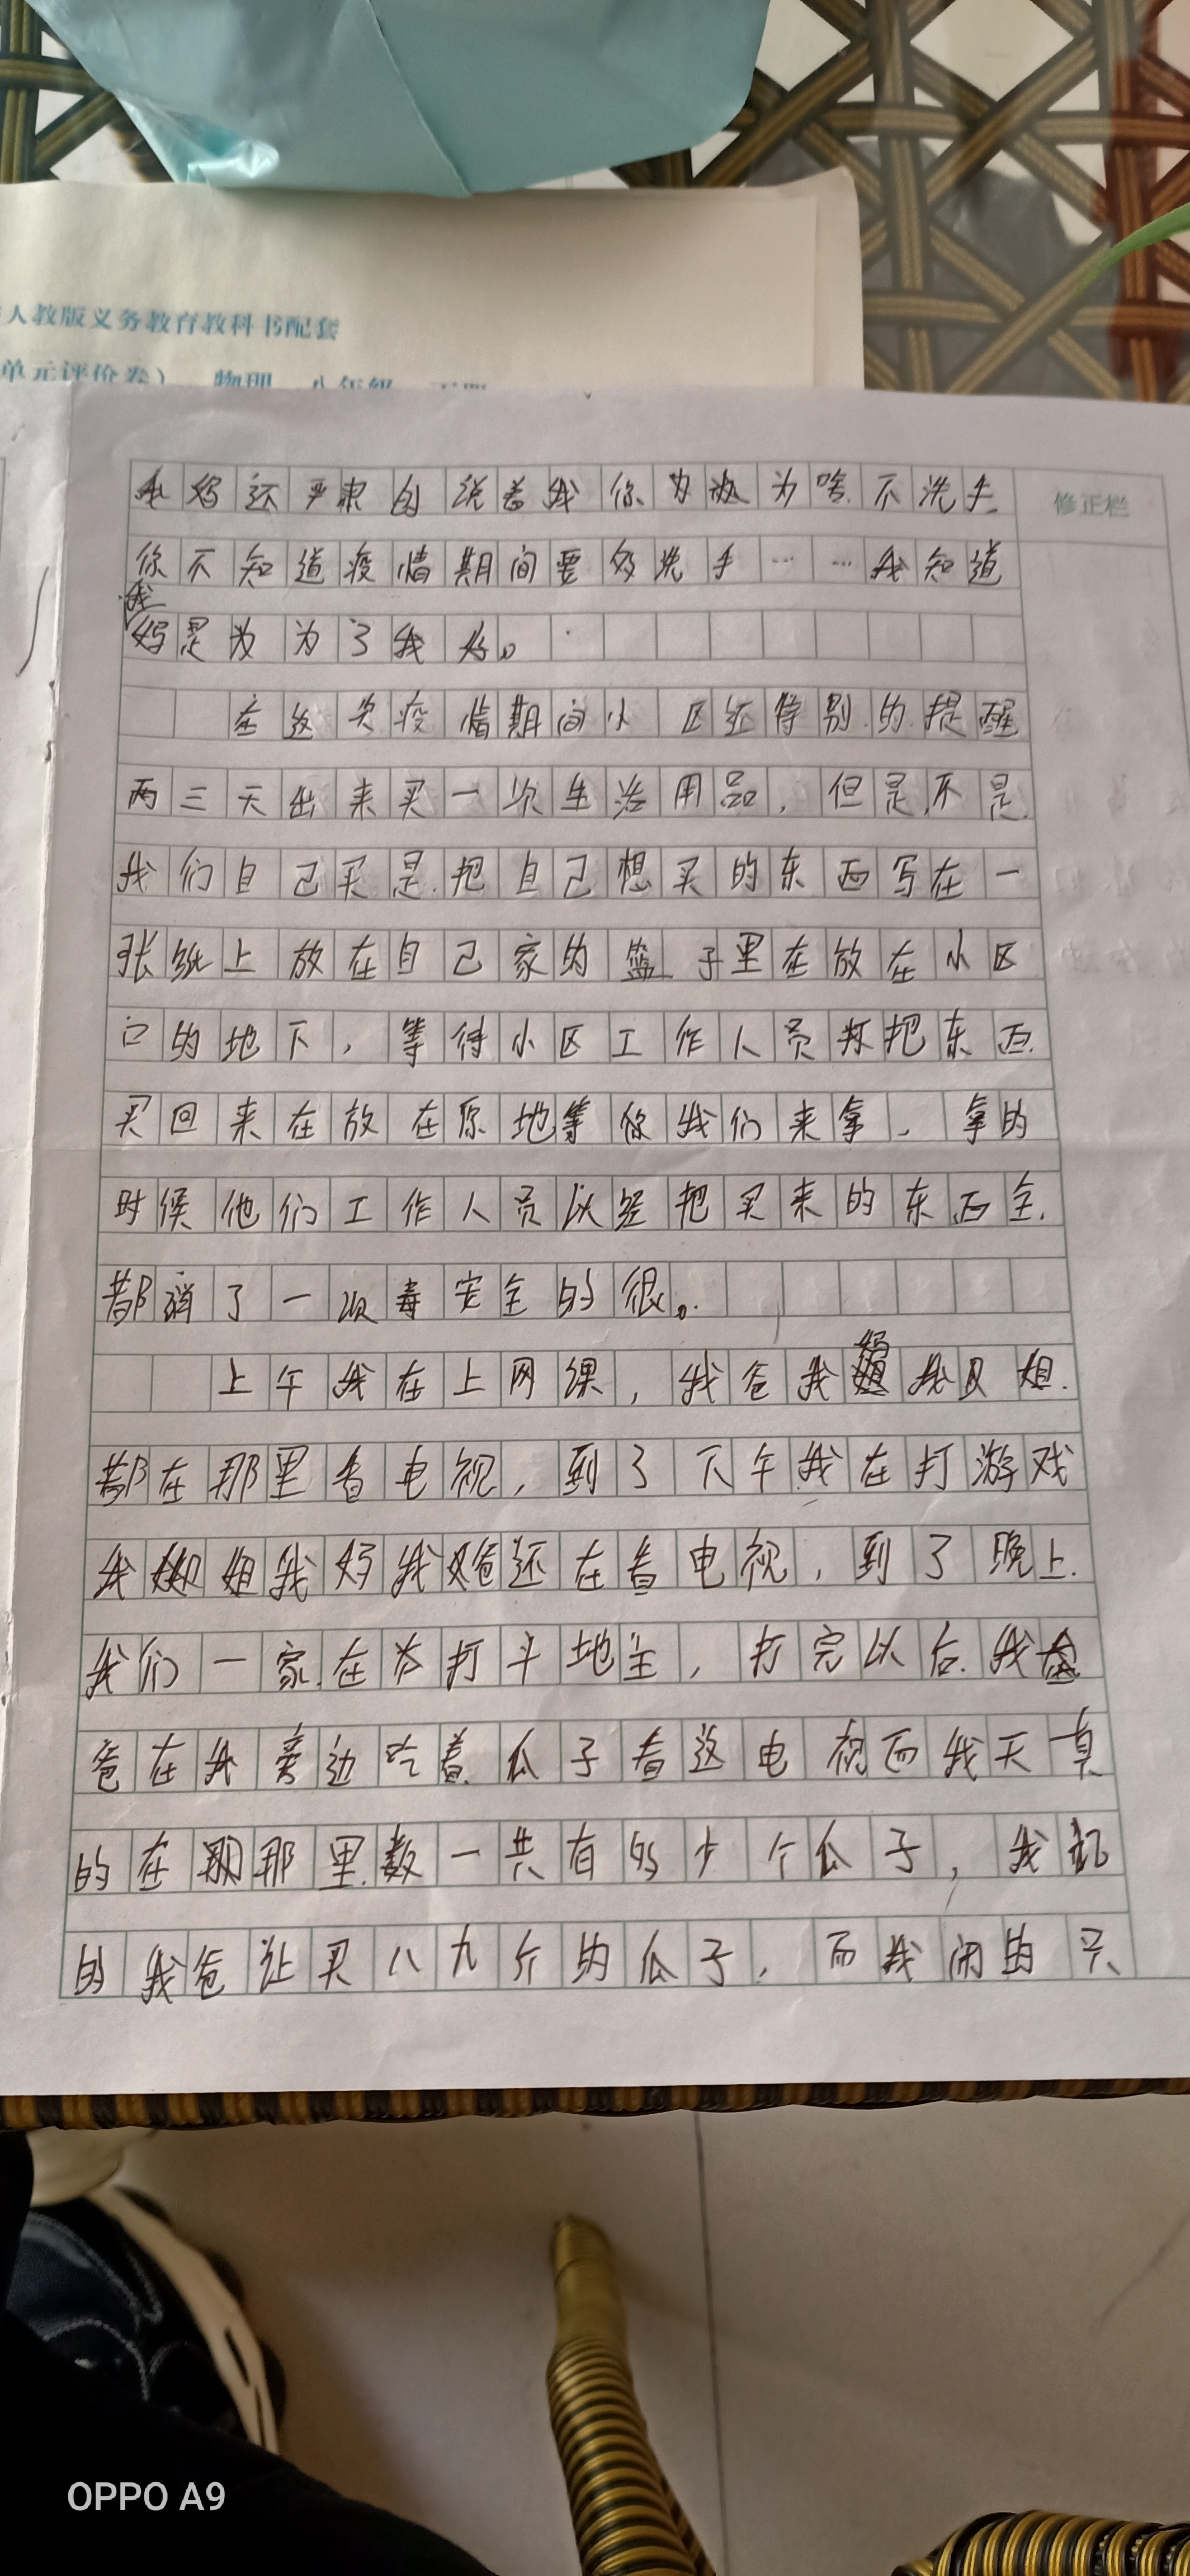 人教版义务教育教科书配套
单元评价卷） 物理 八年级 下册
修正栏
我妈还严肃的说着我你为为啥不洗手
你不知道疫情期间要多洗手……我知道
我
妈是为为了我好。
在这次疫情期间小区还特别的提醒
两三天出来买一次生活用品，但是不是
我们自己买是把自己想买的东西写在一
张纸上放在自己家的篮子里在放在小区
口的地下，等待小区工作人员把东西
买回来在放在原地等你我们来拿，拿的
时候他们工作人员以经把买来的东西全
都消了一次毒安全的很。
妈
上午我在上网课，我爸我我及姐
都在那里看电视，到了下午我在打游戏
我姐我妈我爸还在看电视，到了晚上
我们一家在打斗地主，打完以后我
爸在我旁边吃着瓜子看这电视而我天真
的在那里数一共有多少个瓜子，我
的我爸让买八九斤的瓜子，而我闲的只
OPPO A9